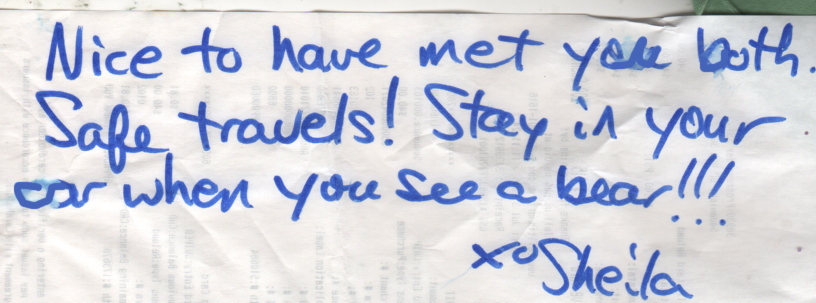 Nice to have met you both.
Safe travels! Stay in your
car when you see a bear!!!
xo Sheila